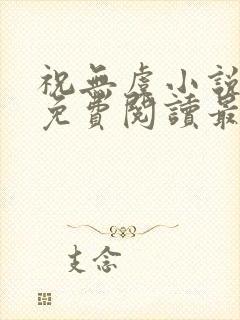 祝無虞小說
免費閱讀最
支念